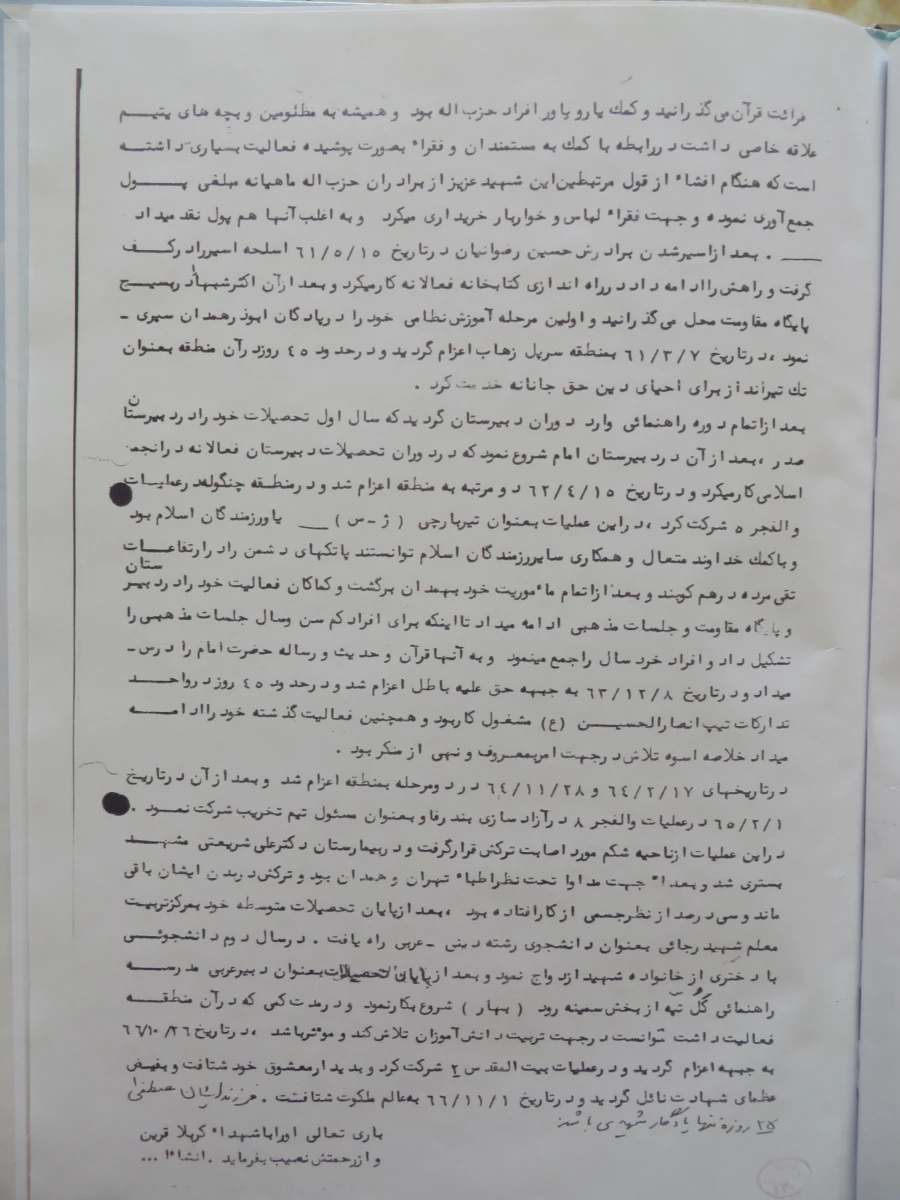 قرائت قرآن می گذرانید و کمک یار و یاور افراد حزب اله بود و همیشه به مظلومین و بچه های یتیم
علاقه خاصی داشت در رابطه با کمک به مستمندان و فقراء بصورت پوشیده فعالیت بسیاری داشته
است که هنگام افشاء از قول مرتبطین این شهید عزیز از برادران حزب اله ماهیانه مبلغی پول
جمع آوری نموده و جهت فقراء لباس و خواربار خریداری میکرد و به اغلب آنها هم پول نقد میداد
. بعد از اسیر شدن برادرش حسین رضوانیان در تاریخ ۶۱/۵/۱۵ اسلحه اسیر را در کف
گرفت و راهش را ادامه داد در راه اندازی کتابخانه فعالانه کار میکرد و بعد از آن اکثر شبها را در بسیج
پایگاه مقاومت محل می گذرانید و اولین مرحله آموزش نظامی خود را در پادگان ابوذر همدان سپری -
نمود ، در تاریخ ۶۱/۳/۷ بمنطقه سرپل زهاب اعزام گردید و در حدود ۴۵ روز در آن منطقه بعنوان
تک تیرانداز برای احیای دین حق جانانه خدمت کرد .
بعد از اتمام دوره راهنمائی وارد دوران دبیرستان گردید که سال اول تحصیلات خود را در دبیرستان
صدر ، بعد از آن در دبیرستان امام شروع نمود که در دوران تحصیلات دبیرستان فعالانه در انجمن
اسلامی کار میکرد و در تاریخ ۶۲/۴/۱۵ دو مرتبه به منطقه اعزام شد و در منطقه چنگوله در عملیات
والفجر ۵ شرکت کرد ، در این عملیات بعنوان تیربارچی ( ژ-س ) یاور زمندگان اسلام بود
و با کمک خداوند متعال و همکاری سایر رزمندگان اسلام توانستند پاتکهای دشمن را در ارتفاعات
تقی مرده در هم کوبند و بعد از اتمام مأموریت خود بهمدان برگشت و کماکان فعالیت خود را در دبیرستان
و پایگاه مقاومت و جلسات مذهبی ادامه میداد تا اینکه برای افراد کم سن و سال جلسات مذهبی را
تشکیل داد و افراد خردسال را جمع مینمود و به آنها قرآن و حدیث و رساله حضرت امام را درس -
میداد و در تاریخ ۶۳/۱۲/۸ به جبهه حق علیه باطل اعزام شد و در حدود ۴۵ روز در واحد
تدارکات تیپ انصارالحسین (ع) مشغول کار بود و همچنین فعالیت گذشته خود را ادامه
میداد خلاصه اسوه تلاش در جهت امر بمعروف و نهی از منکر بود .
در تاریخهای ۶۴/۲/۱۷ و ۶۴/۱۱/۲۸ در دو مرحله بمنطقه اعزام شد و بعد از آن در تاریخ
۶۵/۲/۱ در عملیات والفجر ۸ در آزاد سازی بندر فاو بعنوان مسئول تیم تخریب شرکت نمود .
در این عملیات از ناحیه شکم مورد اصابت ترکش قرار گرفت و در بیمارستان دکتر علی شریعتی مشهد
بستری شد و بعداً جهت مداوا تحت نظر اطباء تهران و همدان بود و ترکش در بدن ایشان باقی
ماند و سی درصد از نظر جسمی از کار افتاده بود ، بعد از پایان تحصیلات متوسطه خود بمرکز تربیت
معلم شهید رجائی بعنوان دانشجوی رشته دینی - عربی راه یافت . در سال دوم دانشجوئی
با دختری از خانواده شهید ازدواج نمود و بعد از پایان تحصیلات بعنوان دبیر عربی مدرسه
راهنمائی گل تپه از بخش سمینه رود ( بهار ) شروع بکار نمود و در مدت کمی که در آن منطقه
فعالیت داشت توانست در جهت تربیت دانش آموزان تلاش کند و موثر باشد ، در تاریخ ۶۶/۱۰/۲۶
به جبهه اعزام گردید و در عملیات بیت المقدس ۲ شرکت کرد و بدیدار معشوق خود شتافت و بفیض
عظمای شهادت نائل گردید و در تاریخ ۶۶/۱۱/۱ به عالم ملکوت شتافت . فرزند ایشان مصطفی
۲۵ روزه تنها یادگار شهید می باشد
باری تعالی او را با شهداء کربلا قرین
و از رحمتش نصیب بفرماید . انشاءا ...